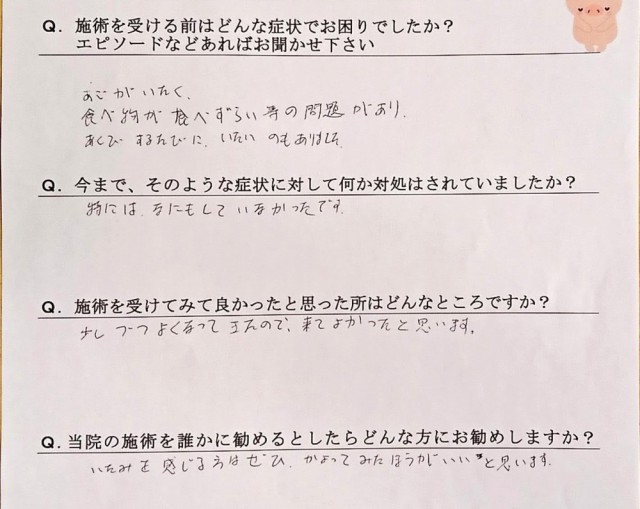 Q．施術を受ける前はどんな症状でお困りでしたか？
エピソードなどあればお聞かせ下さい
あごがいたく、
食べ物が食べずらい等の問題があり、
あくびするたびに、いたいのもありました。
Q．今まで、そのような症状に対して何か対処はされていましたか？
特には、なにもしていなかったです。
Q．施術を受けてみて良かったと思った所はどんなところですか？
少しづつよくなってきたので、来てよかったと思います。
Q．当院の施術を誰かに勧めるとしたらどんな方にお勧めしますか？
いたみを感じる方はぜひ、かよってみたほうがいいと思います。